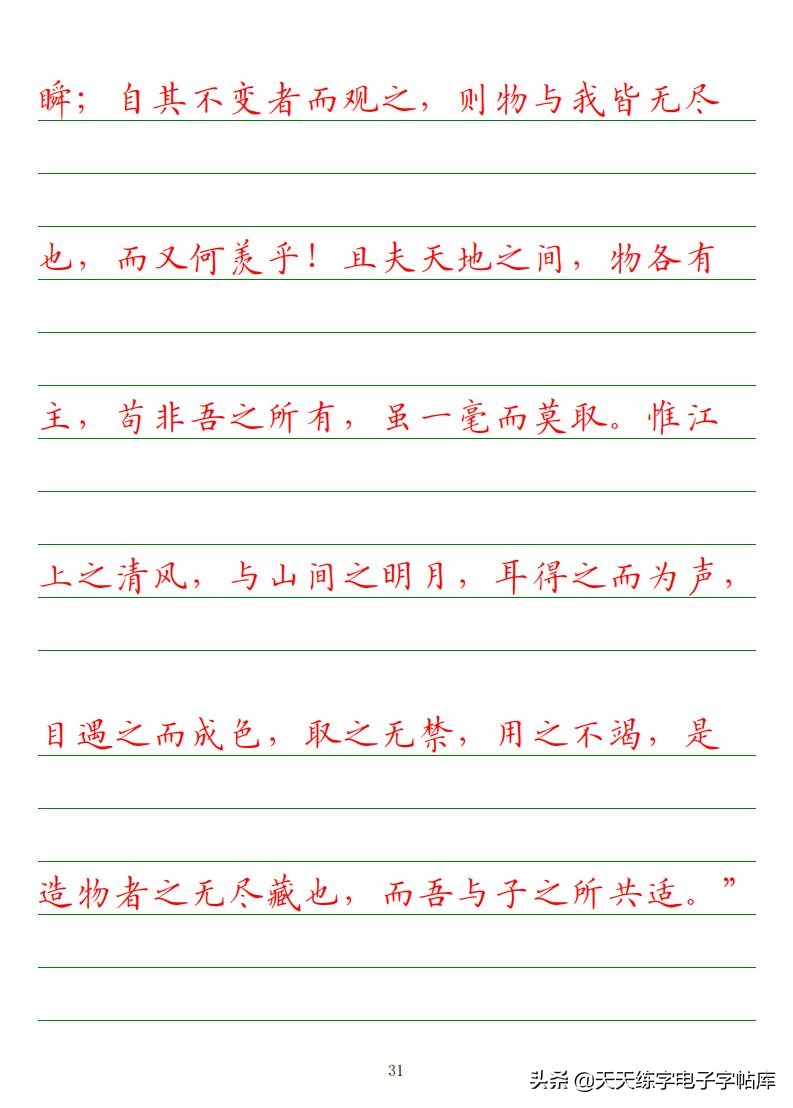 瞬；自其不变者而观之，则物与我皆无尽
也，而又何羡乎！且夫天地之间，物各有
主，苟非吾之所有，虽一毫而莫取。惟江
上之清风，与山间之明月，耳得之而为声，
目遇之而成色，取之无禁，用之不竭，是
造物者之无尽藏也，而吾与子之所共适。”
31
头条 @天天练字电子字帖库